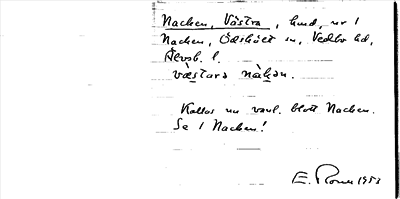 Nacken, Västra, hmd, nr 1
Nacken, Ödeshöct sn, Vedbo hd,
Älvsb. l.
västara nàkan.
Kallas nu vanl. blott Nacken.
Se 1 Nacken!
E. 1953